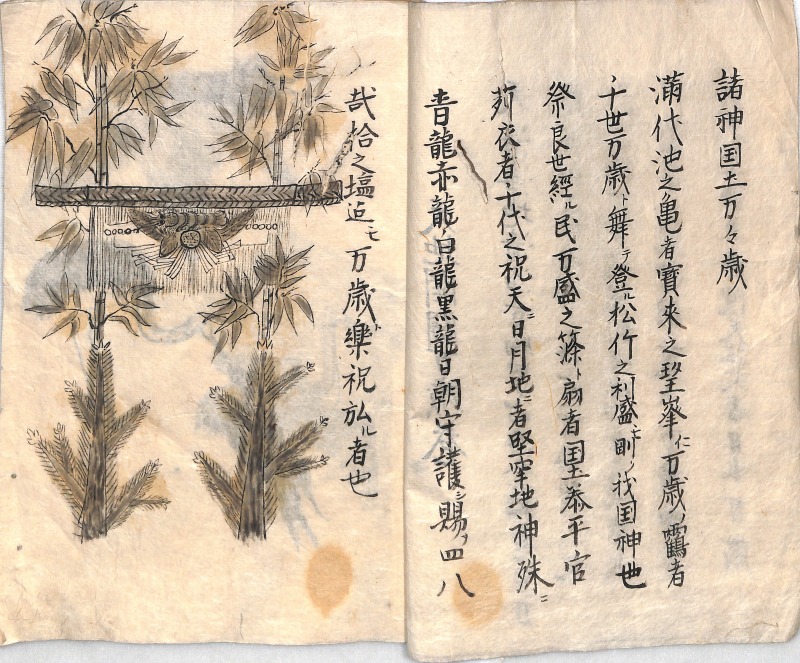 諸神国土万々歳
満代池之亀者寶來之聖峯ニ万歳ノ靏者
千世万歳ト舞テ登ル松竹之利盛モ則ノ我国神也
祭良世經ル民万盛之篠ト扇者国土泰平官
衣者千代之祝天ニ日月地ニ者堅牢地神殊ニ
青龍赤龍白龍黒龍日朝守護シ賜フ四八
貳拾之塩迠モ万歳樂ト祝弘ル者也